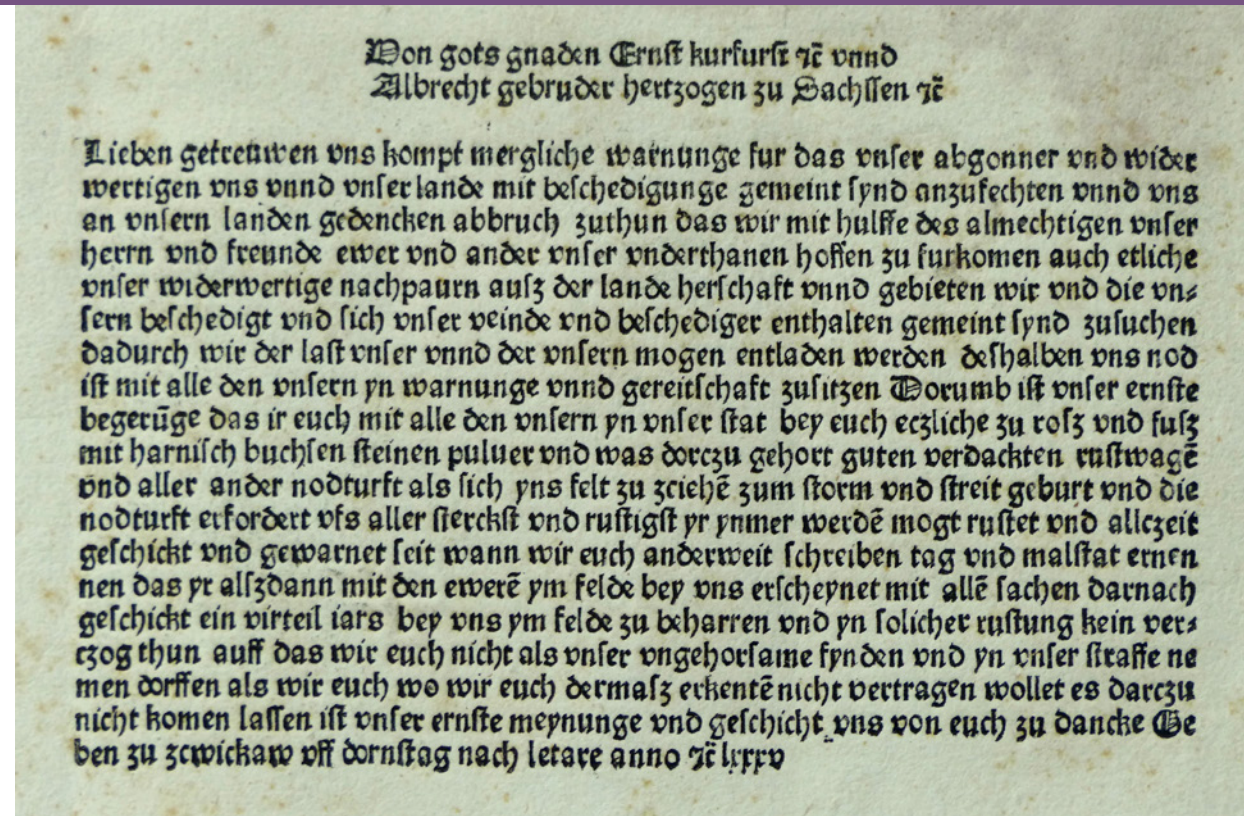 Von gots gnaden Ernst kurfurst ⁊c̃ vnnd
Albrecht gebruder hertzogen zu Sachssen ⁊c̃
Lieben getreuwen vns kompt mergliche warnunge fur das vnser abgonner vnd wider
wertigen vns vnnd vnser lande mit beschedigunge gemeint synd anzufechten vnnd vns
an vnsern landen gedencken abbruch zuthun das wir mit hulffe des almechtigen vnser
herrn vnd freunde ewer vnd ander vnser vnderthanen hoffen zu furkomen auch etliche
vnser widerwertige nachpaurn ausz der lande herschaft vnnd gebieten wir vnd die vn⸗
sern beschedigt vnd sich vnser veinde vnd beschediger enthalten gemeint synd zusuchen
dadurch wir der last vnser vnnd der vnsern mogen entladen werden deshalben vns nod
ist mit alle den vnsern yn warnunge vnnd gereitschaft zusitzen Dorumb ist vnser ernste
begerūge das ir euch mit alle den vnsern yn vnser stat bey euch eczliche zu rosz vnd fusz
mit harnisch buchsen steinen puluer vnd was dorczu gehort guten verdackten rustwagē
vnd aller ander nodturft als sich yns felt zu zciehē zum storm vnd streit geburt vnd die
nodturft erfordert vfs aller sterckst vnd rustigst yr ymmer werdē mogt rustet vnd allczeit
geschickt vnd gewarnet seit wann wir euch anderweit schreiben tag vnd malstat ernen
nen das yr alszdann mit den ewerē ym felde bey vns erscheynet mit allē sachen darnach
geschickt ein virteil iars bey vns ym felde zu beharren vnd yn solicher rustung kein ver⸗
czog thun auff das wir euch nicht als vnser vngehorsame fynden vnd yn vnser straffe ne
men dorffen als wir euch wo wir euch dermasz erkentē nicht vertragen wollet es darczu
nicht komen lassen ist vnser ernste meynunge vnd geschicht vns von euch zu dancke Ge
ben zu zcwickaw vff dornstag nach letare anno ⁊c̃ lxxxv